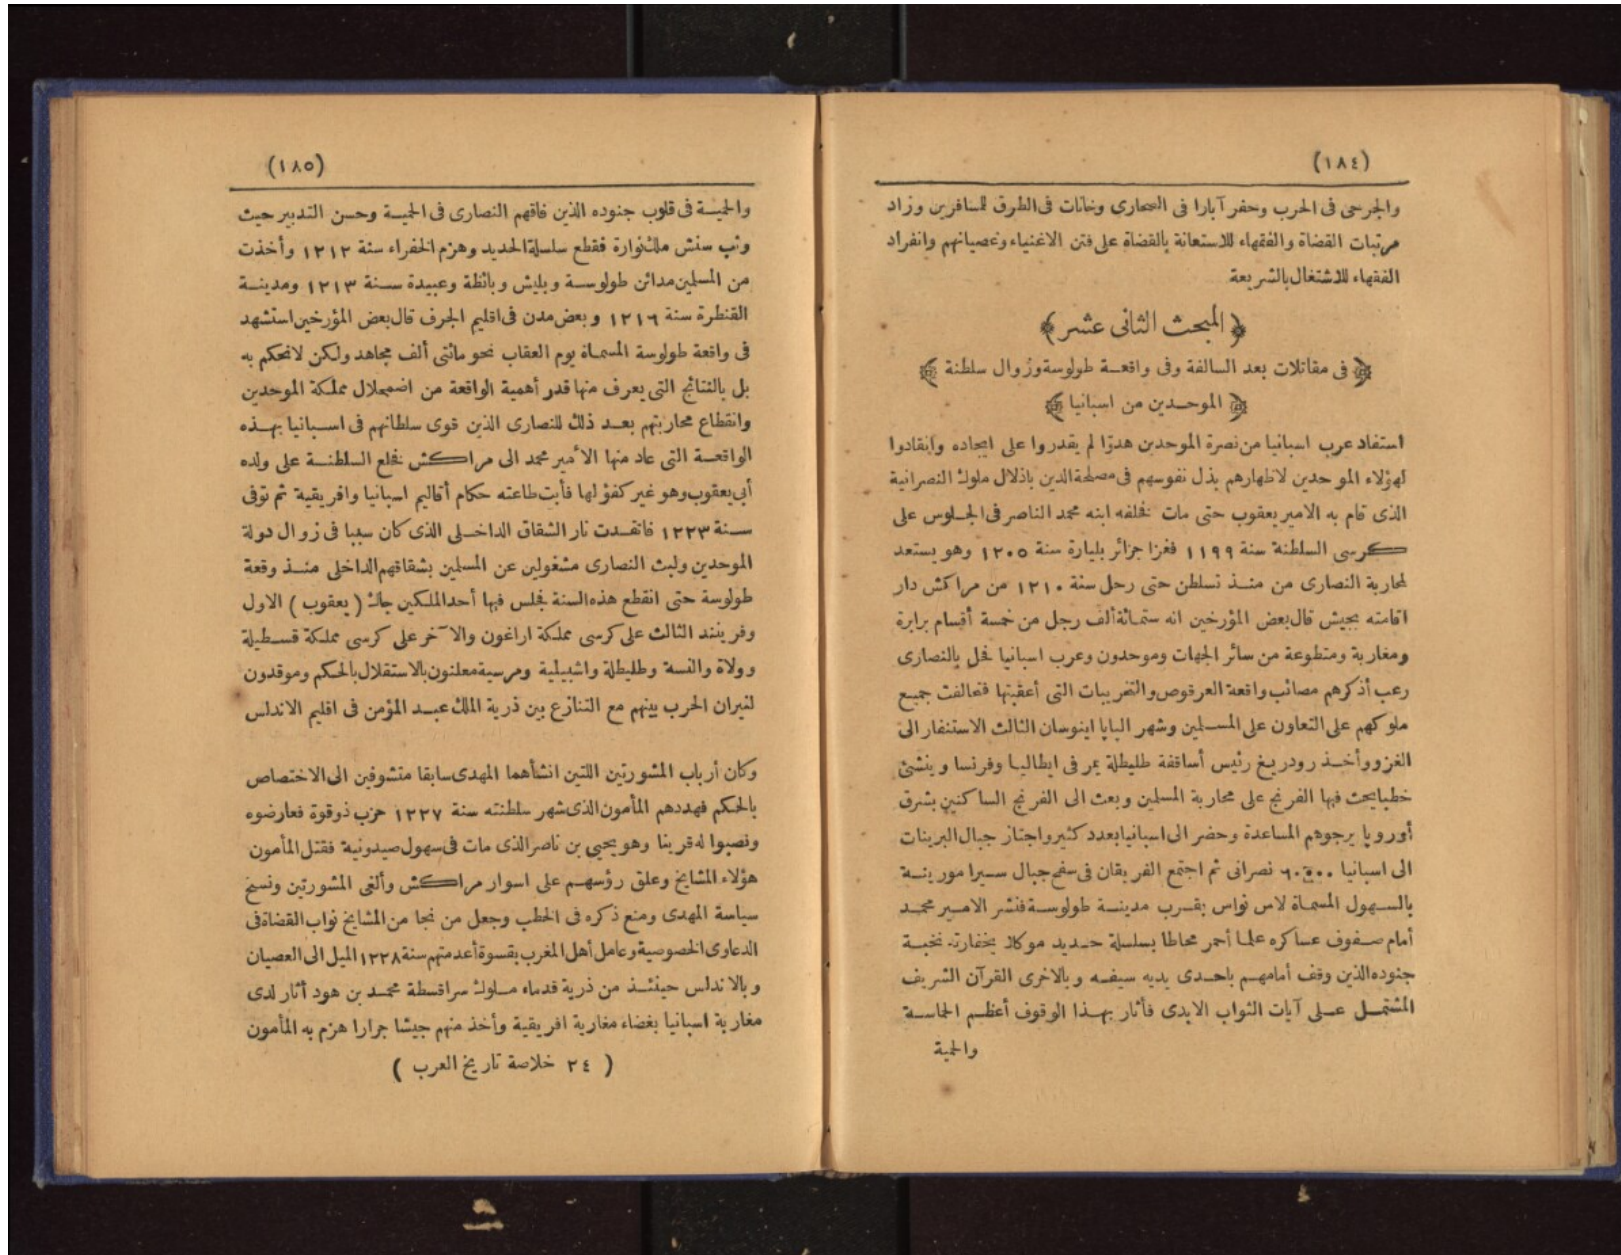 (١٨٤)
والجرحى فى الحرب وحفر آبارا فى الصحارى وخانات فى الطرق للمسافرين وزاد
مرتبات القضاة والفقهاء للاستعانة بالقضاة على فتن الاغنياء وعصيانهم وانفراد
الفقهاء للاشتغال بالشريعة
﴿ المبحث الثانى عشر ﴾
﴿ فى مقاتلات بعد السالفة وفى واقعة طولوسة وزوال سلطنة ﴾
﴿ الموحدين من اسبانيا ﴾
استفاد عرب اسبانيا من نصرة الموحدين هدوّا لم يقدروا على ايجاده وانقادوا
لهؤلاء الموحدين لاظهارهم بذل نفوسهم فى مصلحة الدين باذلال ملوك النصرانية
الذى قام به الامير يعقوب حتى مات فخلفه ابنه محمد الناصر فى الجلوس على
كرسى السلطنة سنة ١١٩٩ فغزا جزائر بليارة سنة ١٢٠٥ وهو يستعد
لمحاربة النصارى من منذ تسلطن حتى رحل سنة ١٢١٠ من مراكش دار
اقامته بجيش قال بعض المؤرخين انه ستمائة ألف رجل من خمسة أقسام برابرة
ومغاربة ومتطوعة من سائر الجهات وموحدون وعرب اسبانيا فحل بالنصارى
رعب أذكرهم مصائب واقعة العرقوص والتخريبات التى أعقبتها فتحالفت جميع
ملوكهم على التعاون على المسلمين وشهر البابا اينوسان الثالث الاستنفار الى
الغزو وأخذ رودريغ رئيس أساقفة طليطلة يمر فى ايطاليا وفرنسا وينشئ
خطبا يحث فيها الفرنج على محاربة المسلمين وبعث الى الفرنج الساكنين بشرق
أوروپا يرجوهم المساعدة وحضر الى اسبانيا بعدد كثير واجتاز جبال البرينات
الى اسبانيا ٦٠٠٠٠ نصرانى ثم اجتمع الفريقان فى سفح جبال سيرا مورينة
بالسهول المسماة لاس نواس بقرب مدينة طولوسة فنشر الامير محمد
أمام صفوف عساكره علما أحمر محاطا بسلسلة حديد موكلا بخفارته نخبة
جنوده الذين وقف أمامهم باحدى يديه سيفه وبالاخرى القرآن الشريف
المشتمل على آيات الثواب الابدى فأثار بهذا الوقوف أعظم الحماسة
والحمية
(١٨٥)
والحمية فى قلوب جنوده الذين فاقهم النصارى فى الحمية وحسن التدبير حيث
وثب سنش ملك نوارة فقطع سلسلة الحديد وهزم الخفراء سنة ١٢١٢ وأخذت
من المسلمين مدائن طولوسة وبليش وبانظة وعبيدة سنة ١٢١٣ ومدينة
القنطرة سنة ١٢١٦ وبعض مدن فى اقليم الجرف قال بعض المؤرخين استشهد
فى واقعة طولوسة المسماة يوم العقاب نحو مائتى ألف مجاهد ولكن لا نحكم به
بل بالنتائج التى يعرف منها قدر أهمية الواقعة من اضمحلال مملكة الموحدين
وانقطاع محاربتهم بعد ذلك للنصارى الذين قوى سلطانهم فى اسبانيا بهذه
الواقعة التى عاد منها الأمير محمد الى مراكش فخلع السلطنة على ولده
أبى يعقوب وهو غير كفؤ لها فأبت طاعته حكام أقاليم اسبانيا وافريقية ثم توفى
سنة ١٢٢٣ فاتقدت نار الشقاق الداخلى الذى كان سببا فى زوال دولة
الموحدين ولبث النصارى مشغولين عن المسلمين بشقاقهم الداخلى منذ وقعة
طولوسة حتى انقطع هذه السنة فجلس فيها أحد الملكين جاك (يعقوب) الاول
وفرينند الثالث على كرسى مملكة اراغون والآخر على كرسى مملكة قسطيلة
وولاة والنسة وطليطلة واشبيلية ومرسية معلنون بالاستقلال بالحكم وموقدون
لنيران الحرب بينهم مع التنازع بين ذرية الملك عبد المؤمن فى اقليم الاندلس
وكان أرباب المشورتين اللتين انشأهما المهدى سابقا متشوفين الى الاختصاص
بالحكم فهددهم المأمون الذى شهر سلطنته سنة ١٢٢٧ حزب ذو قوة فعارضوه
ونصبوا له قرينا وهو يحيى بن ناصر الذى مات فى سهول صيدونية فقتل المأمون
هؤلاء المشايخ وعلق رؤسهم على اسوار مراكش وألغى المشورتين ونسخ
سياسة المهدى ومنع ذكره فى الخطب وجعل من نجا من المشايخ نواب القضاة فى
الدعاوى الخصوصية وعامل أهل المغرب بقسوة أعدمتهم سنة ١٢٢٨ الميل الى العصيان
وبالاندلس حينئذ من ذرية قدماء ملوك سراقسطة محمد بن هود أثار لدى
مغاربة اسبانيا بغضاء مغاربة افريقية وأخذ منهم جيشا جرارا هزم به المأمون
( ٢٤ خلاصة تاريخ العرب )